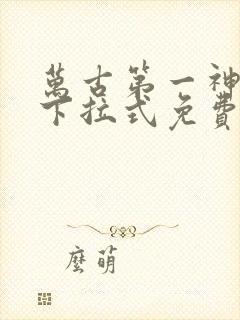 萬古第一神
下拉式免費
麼萌